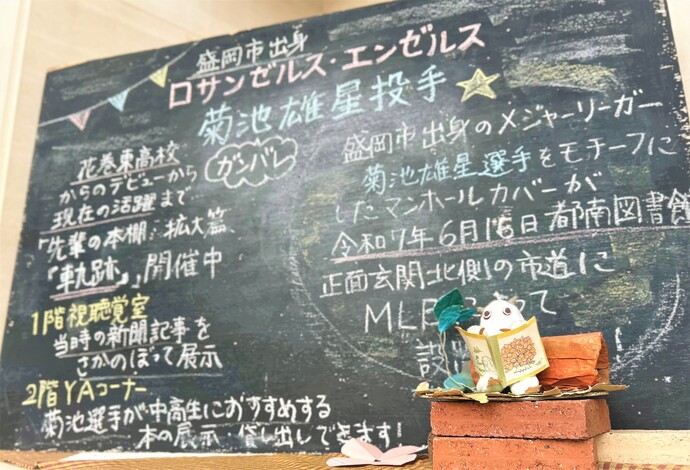 盛岡市出身
ロサンゼルス・エンゼルス
菊池雄星投手
ガンバレ
花巻東高校
からのデビューから
現在の活躍まで
「先輩の本棚：拡大篇
『軌跡』」開催中
1階視聴覚室
当時の新聞記事を
さかのぼって展示
2階YAコーナー
菊池選手が中高生におすすめする
本の展示・貸し出しできます!
盛岡市出身のメジャーリーガー
菊池雄星選手をモチーフに
したマンホールカバーが
令和7年6月16日都南図書館
正面玄関北側の市道に
MLB
て
設
!